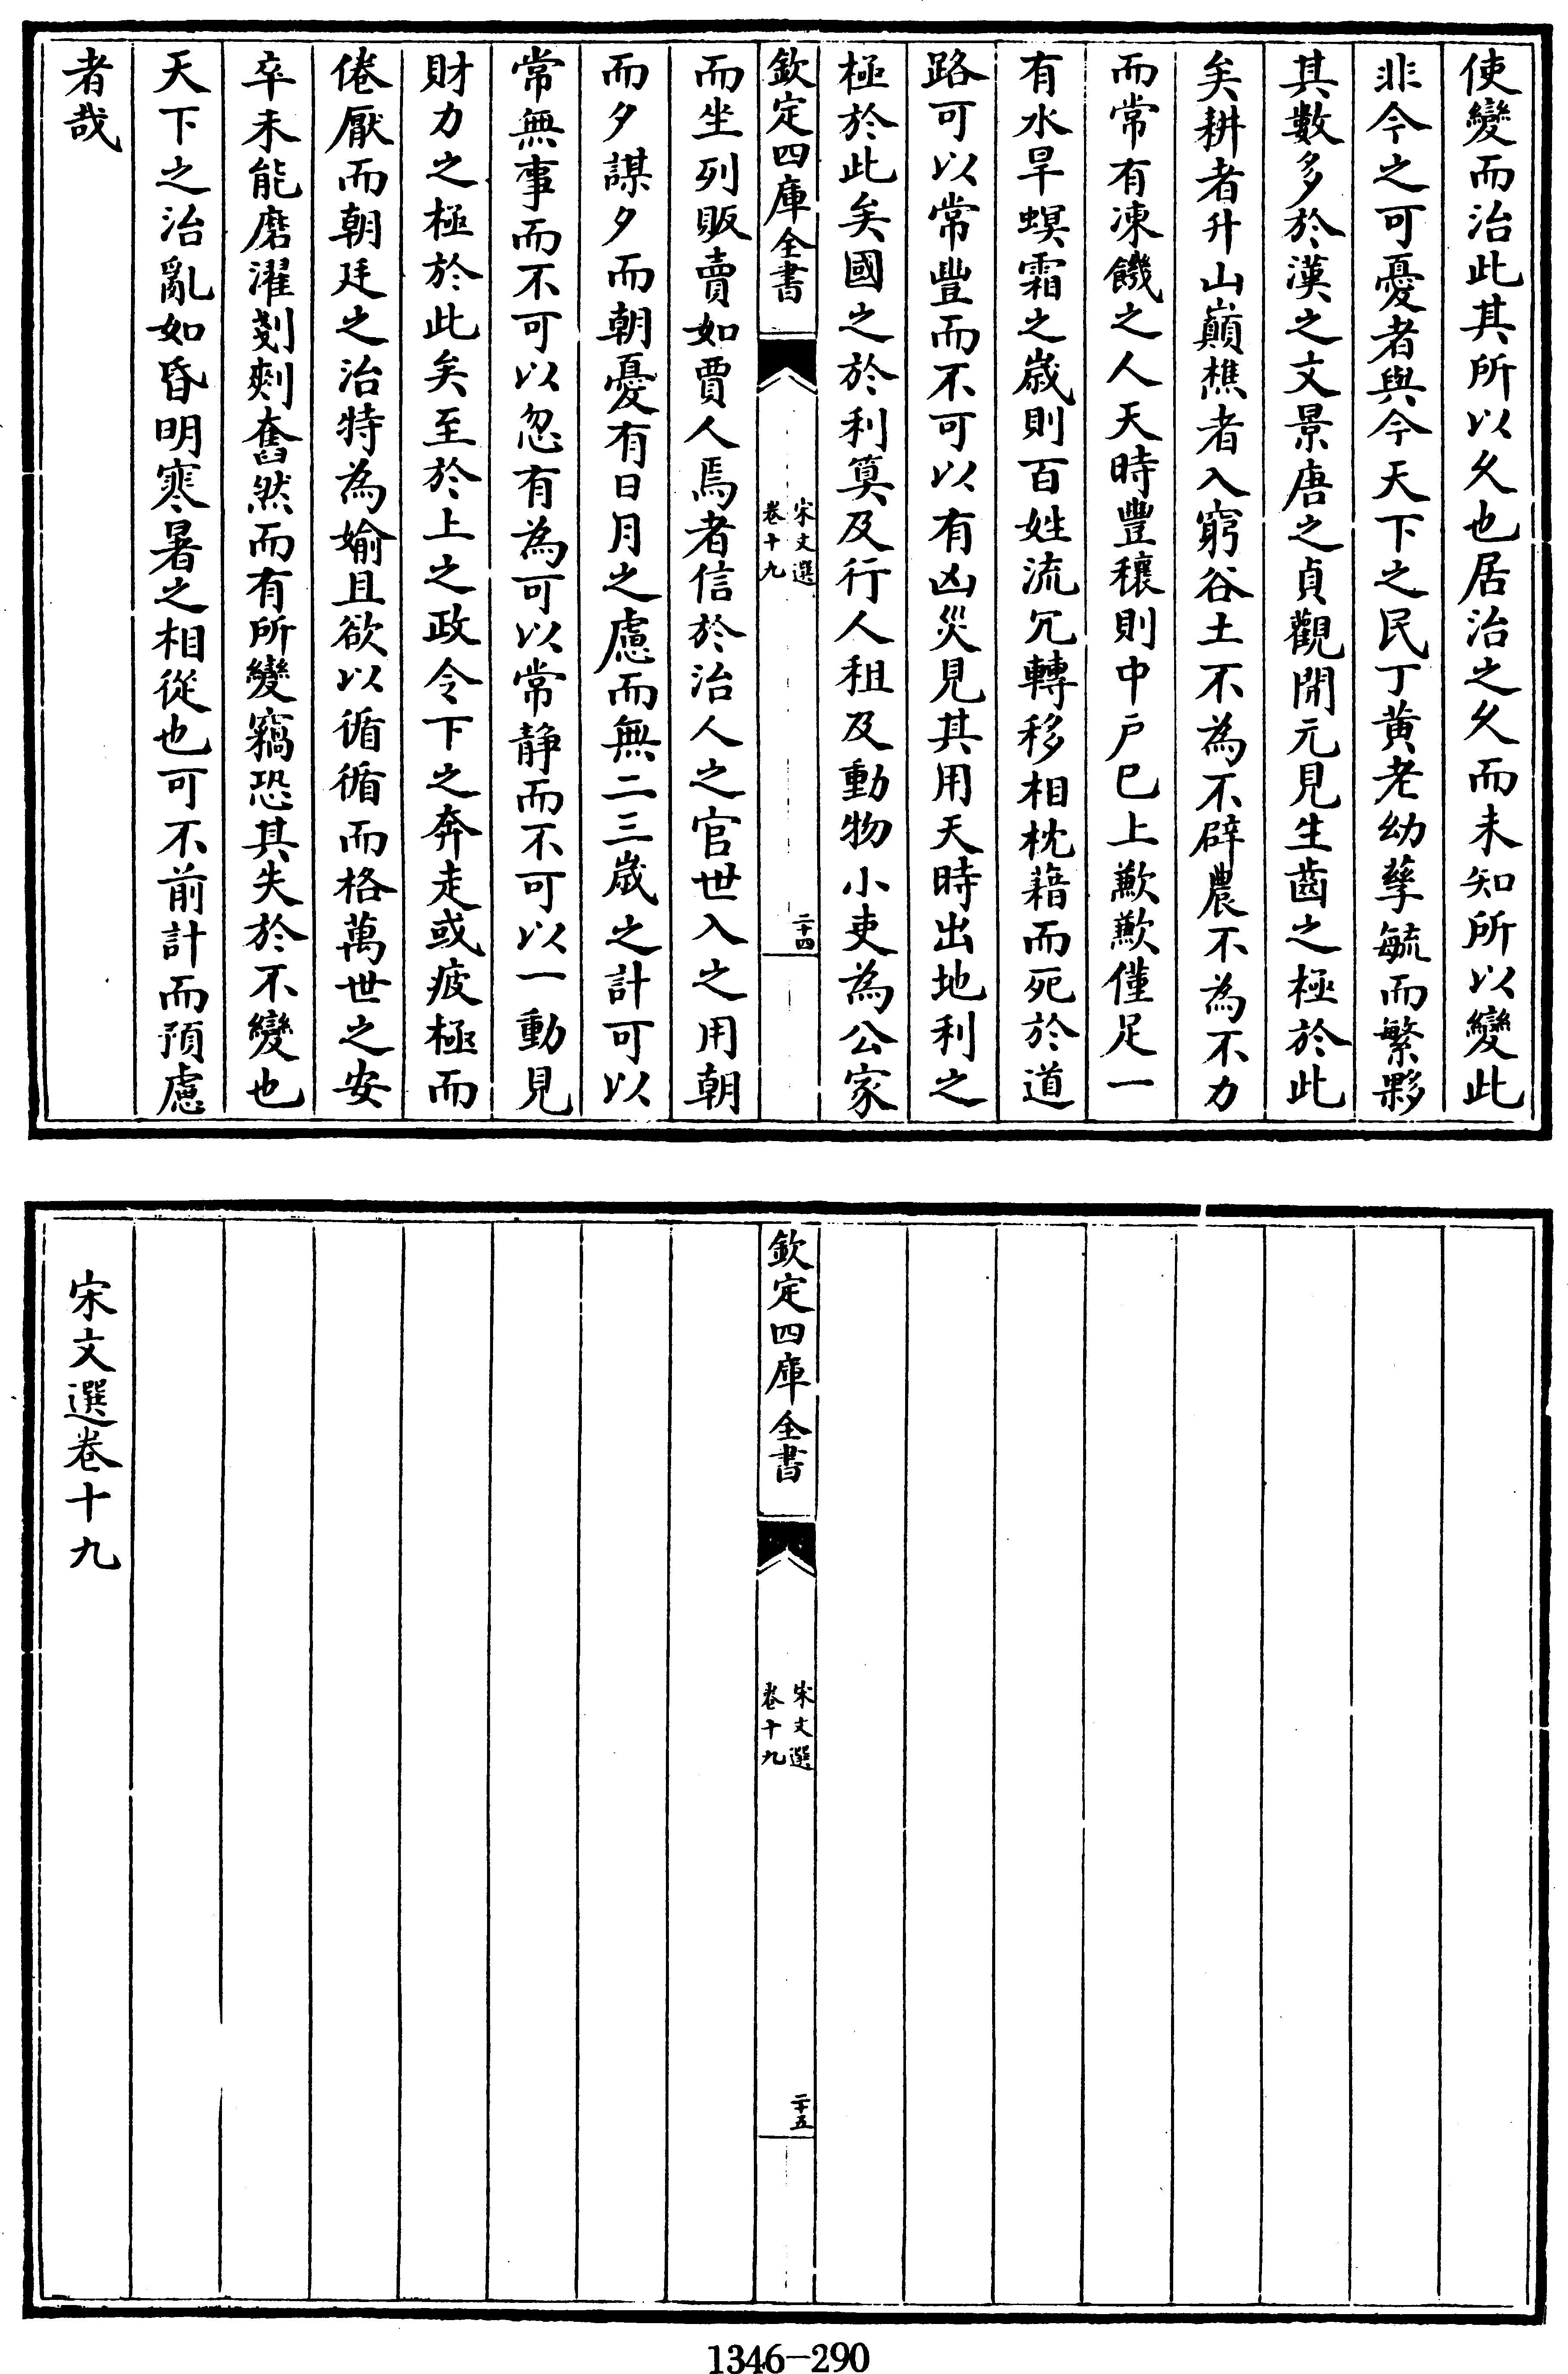 使變而治此其所以久也居治之久而未知所以變此
非今之可憂者與今天下之民丁黄老幼孳毓而繁夥
其數多於漢之文景唐之貞觀開元見生齒之極於此
矣耕者升山巔樵者入窮谷土不為不辟農不為不力
而常有凍饑之人天時豐穰則中户巳上歉歉僅足一
有水旱螟霜之歲則百姓流冗轉移相枕藉而死於道
路可以常豐而不可以有凶災見其用天時出地利之
極於此矣國之於利筭及行人租及動物小吏為公家
欽定四庫全書
宋文選
卷十九
二十四
而坐列販賣如賈人焉者信於治人之官世入之用朝
而夕謀夕而朝憂有日月之慮而無二三歲之計可以
常無事而不可以忽有為可以常静而不可以一動見
財力之極於此矣至於上之政令下之奔走或疲極而
倦厭而朝廷之治特為媮且欲以循循而格萬世之安
卒未能磨濯剗剝奮然而有所變竊恐其失於不變也
天下之治亂如昏明寒暑之相從也可不前計而預慮
者哉
欽定四庫全書
宋文選
卷十九
二十五
宋文選卷十九
1346-290